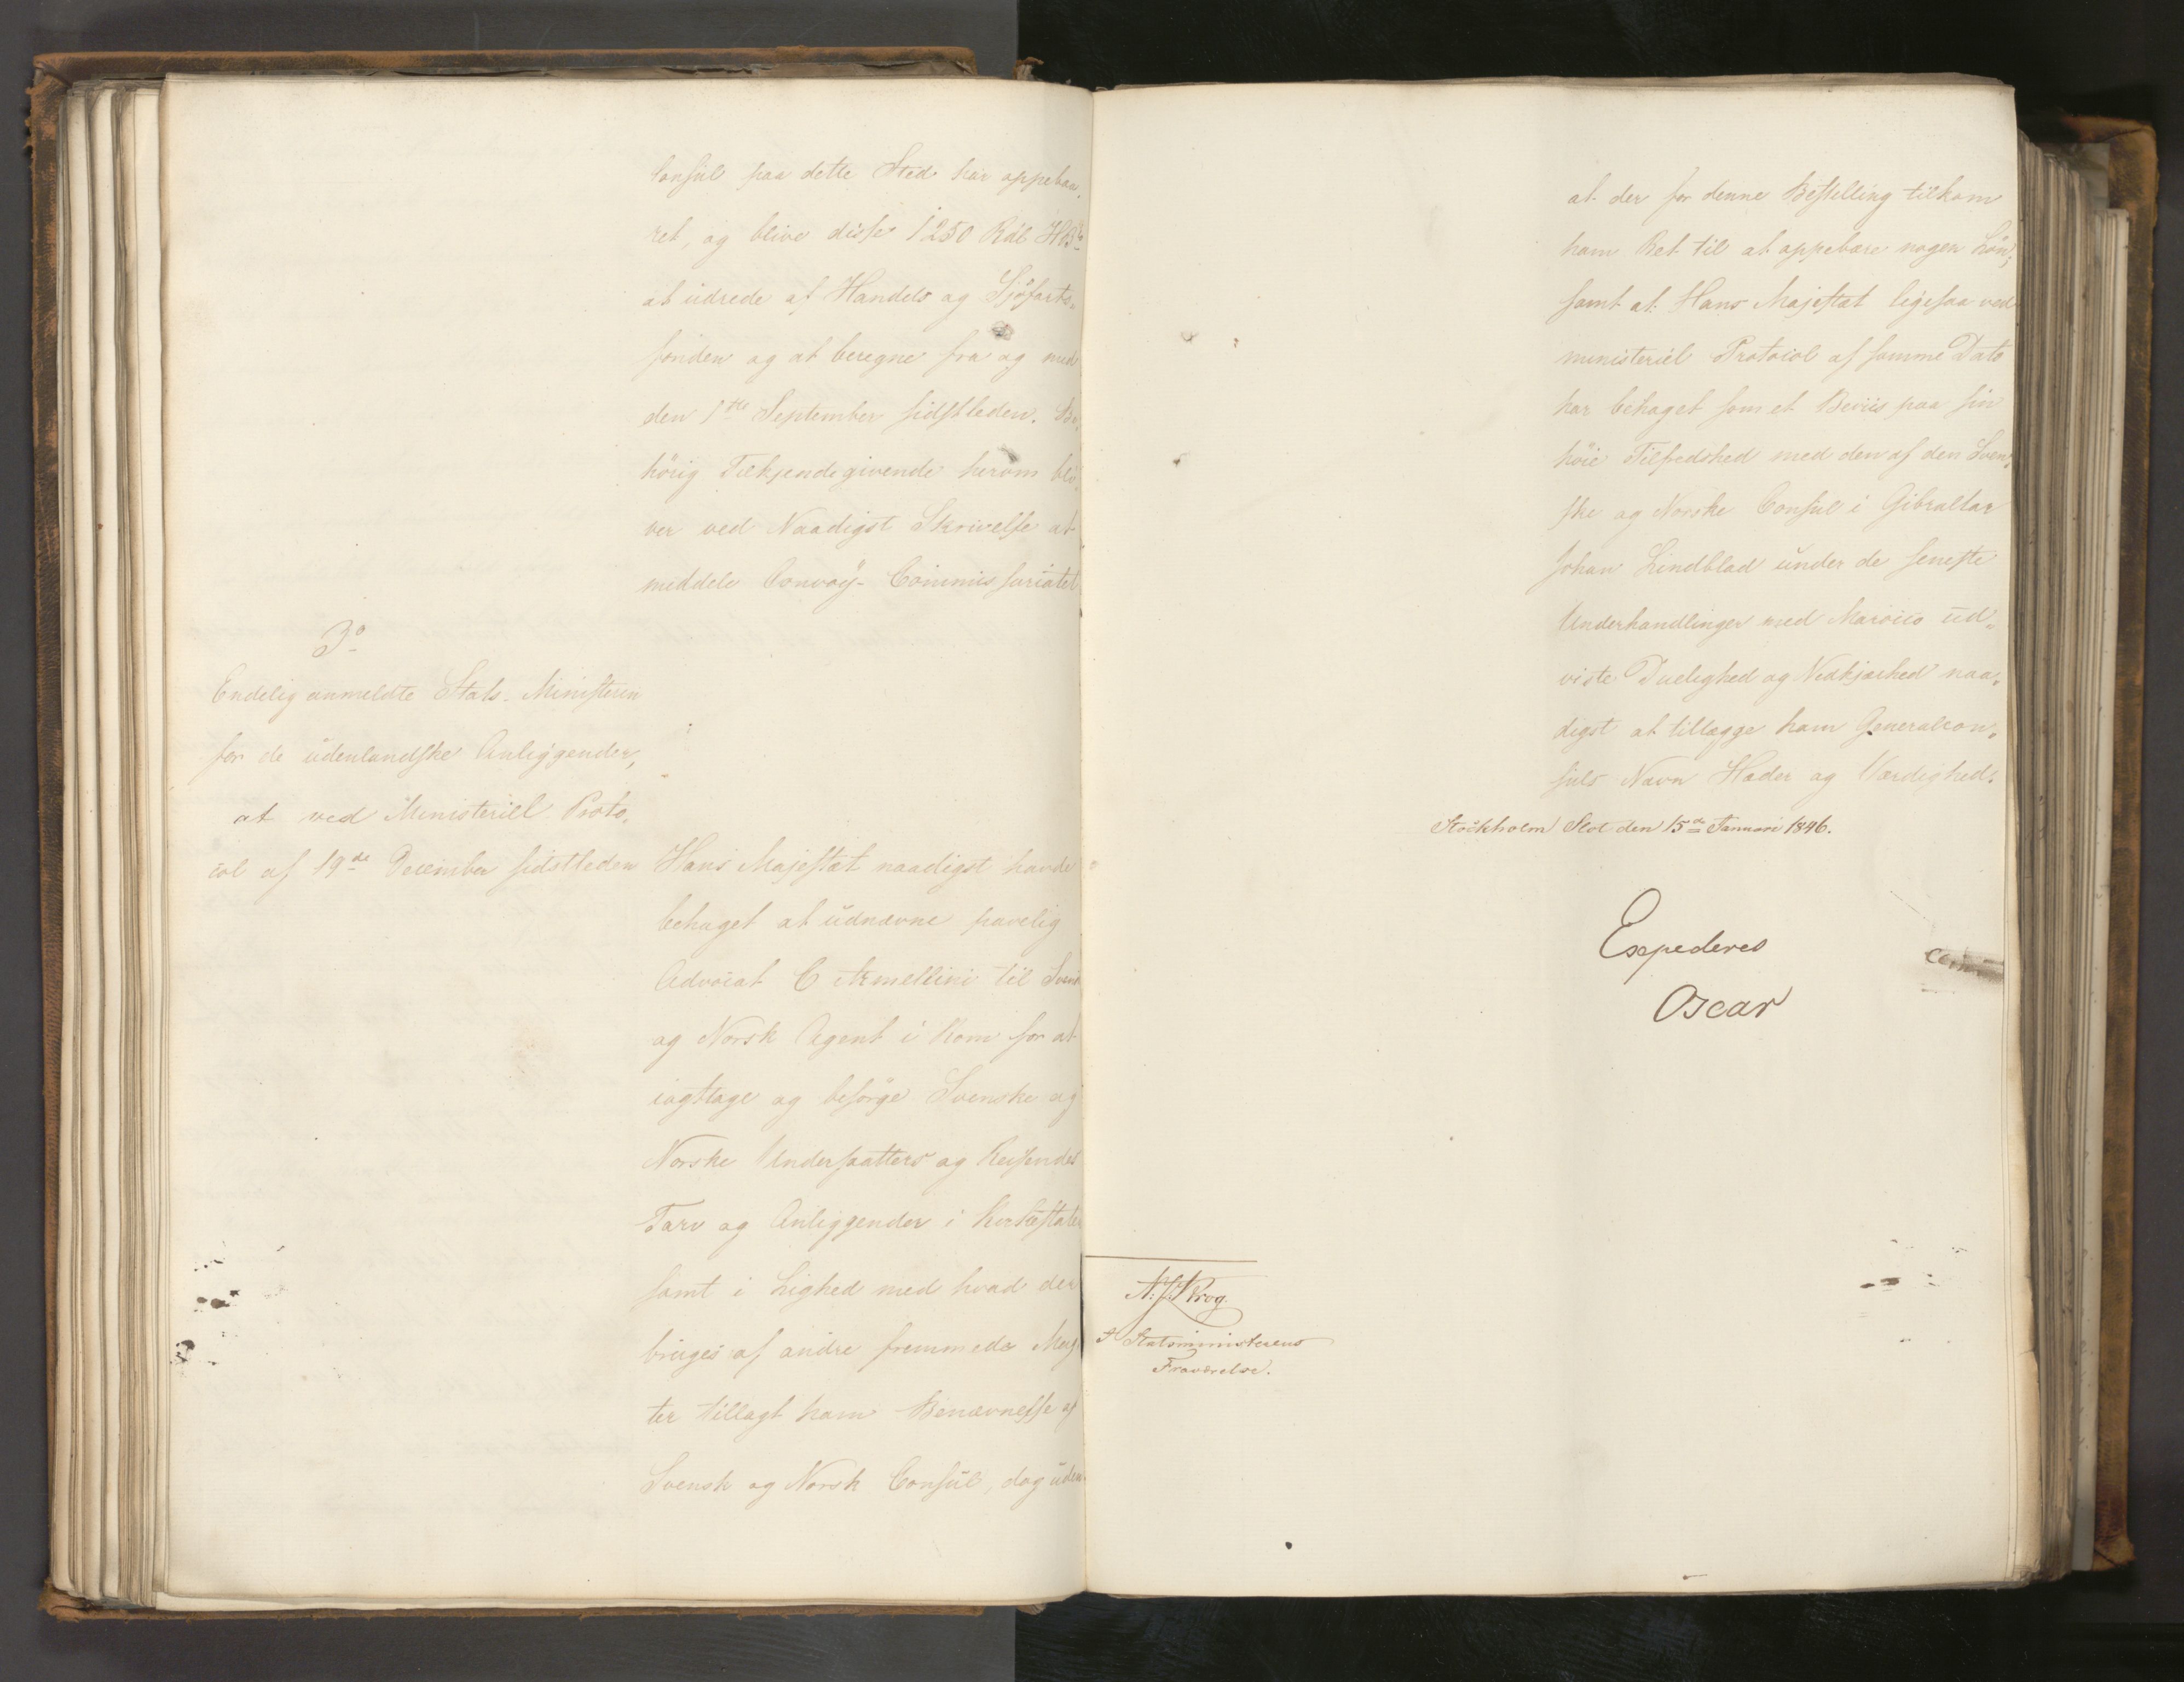 Consul paa dette Sted har oppebaa„
ret, og blive disse 1250 Rdl HBco
at udrede af Handels og Sjöfarts„
fonden og at beregne fra og med
den 1ste September sidstleden. Be„
hörig Tilkjendegivende herom bli„
ver ved Naadigst Skrivelse at
meddele Convoy-Commissariatet
3o
Endelig anmeldte Stats-Ministeren
for de udenlandske Anliggender,
at ved Ministeriel Proto„
col af 19de December sidstleden Hans Majestæt naadigst havde
behaget at udnævne pavelig
Advocat C Armellini til Svensk
og Norsk Agent i Rom for at
iagttage og besörge Svenske og
Norske Undersaatters og Reisendes
Tarv og Anliggender i Kirkestaten
samt i Lighed med hvad der
bruges af andre fremmede Mag
ter tillagt ham Benævnelse af
Svensk og Norsk Consul, dog uden
at der for denne Bestilling tilkom
ham Ret til at oppebære nogen Lön;
samt at Hans Majestæt ligesaa ved
ministeriel Protocol af samme Dato
har behaget som et Beviis paa sin
höie Tilfredshed med den af den Sven„
ske og Norske Consul i Gibraltar
Johan Lindblad under de seneste
Underhandlinger med Marocco ud„
viste Duelighed og Nidkjærhed naa„
digst at tillægge ham Generalcon„
suls Navn Hæder og Værdighed.
Stockholm Slot den 15de Januari 1846.
Expederes
Oscar
N. J. Krog.
I Statsministerens
Fraværelse.